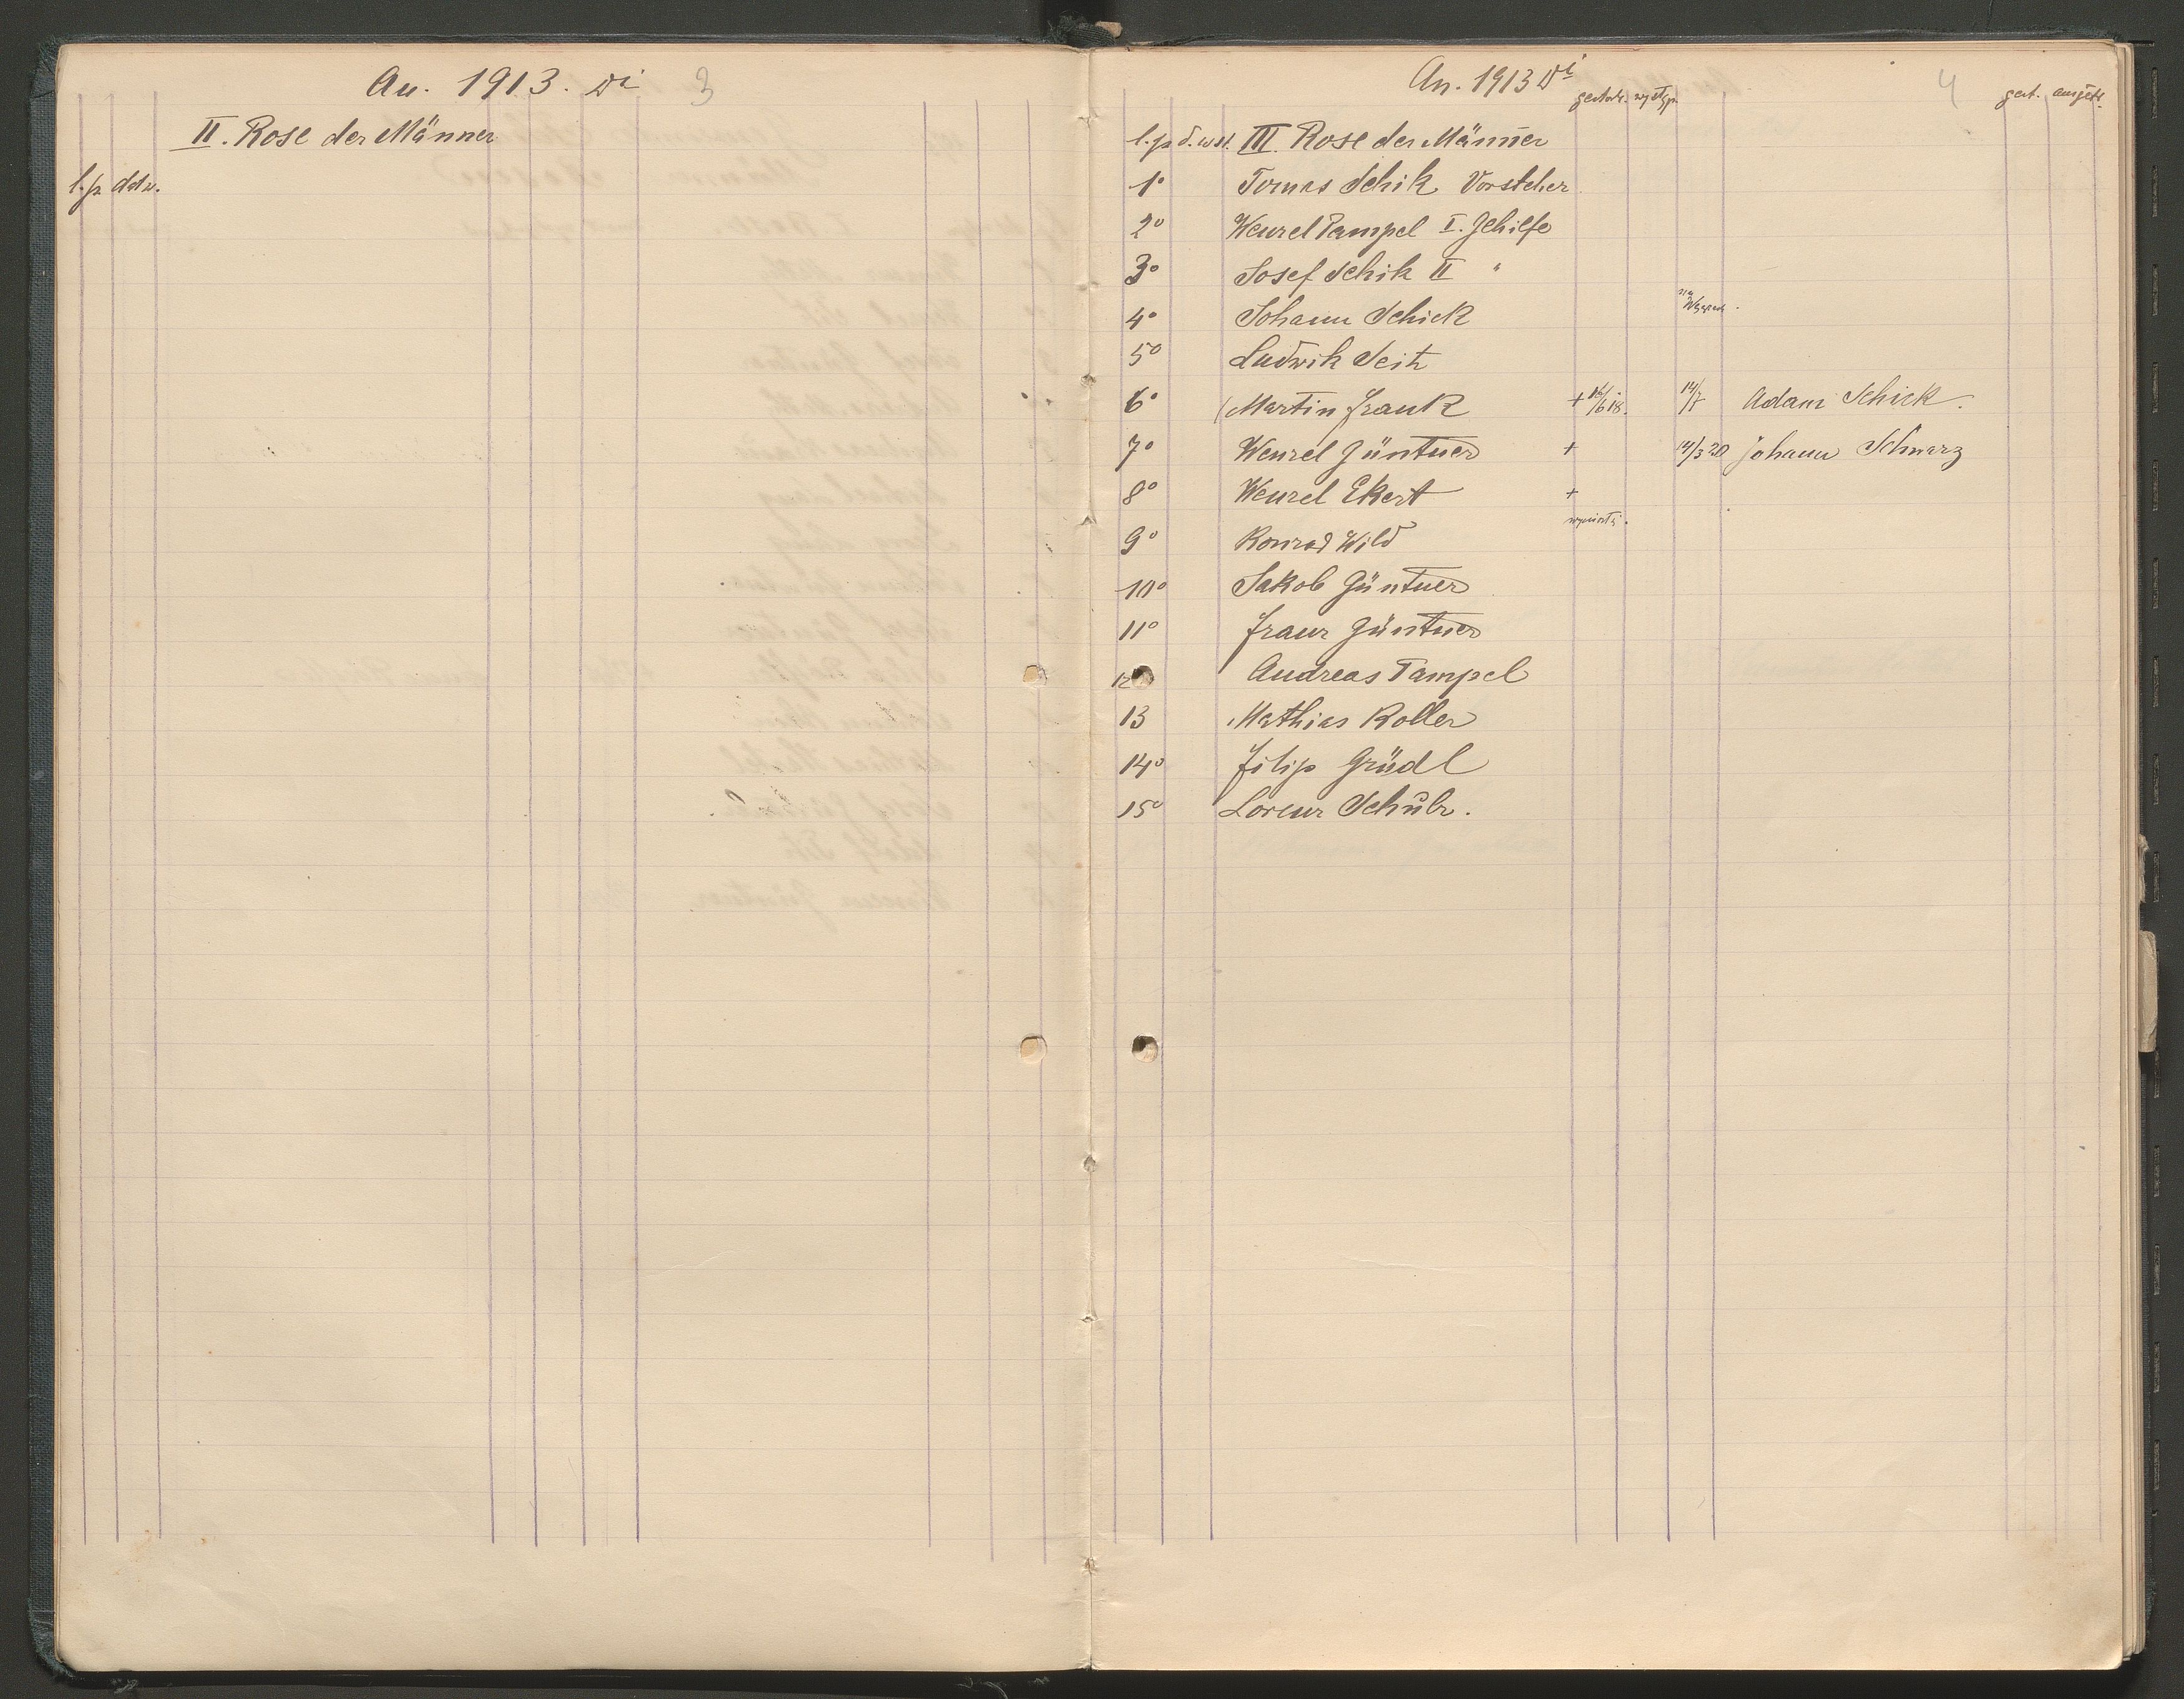 An. 1913. Di 3
II. Rose der Männer
l. p. d. d. w.
An. 1913 Di 4
gestorb. wystąp. gest. ausgetr.
l. p. d. wst. III. Rose der Männer
1° Tomas Schik Vorsteher
2° Wenzel Tampel I. Gehilfe
3° Josef Schik II "
4° Johann Schick
5° Ludwik Seitz
6° Martin Frank + 16/6 18. 14/7 Adam Schick.
7° Wenzel Güntner + 14/3 20 Johann Schwarz
8° Wenzel Ekert +
9° Konrad Wild
10° Jakob Güntner
11° Franz Güntner
12 Andreas Tampel
13 Mathias Koller
14° Filip Grüdl
15° Lorenz Schulz.